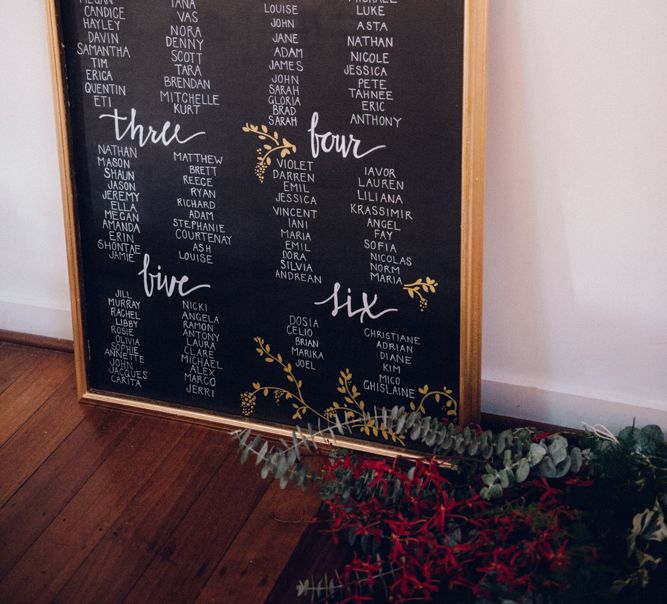 MEGAN
CANDICE
HAYLEY
DAVIN
SAMANTHA
TIM
ERICA
QUENTIN
ETI
TANA
VAS
NORA
DENNY
SCOTT
TARA
BRENDAN
MITCHELLE
KURT
LOUISE
JOHN
JANE
ADAM
JAMES
JOHN
SARAH
GLORIA
BRAD
SARAH
MICHAEL
LUKE
ASTA
NATHAN
NICOLE
JESSICA
PETE
TAHNEE
ERIC
ANTHONY
three
NATHAN
MASON
SHAUN
JASON
JEREMY
ELLA
MEGAN
AMANDA
ERIN
SHONTAE
JAMIE
MATTHEW
BRETT
REECE
RYAN
RICHARD
ADAM
STEPHANIE
COURTENAY
ASH
LOUISE
four
VIOLET
DARREN
EMIL
JESSICA
VINCENT
IANI
MARIA
EMIL
DORA
SILVIA
ANDREAN
IAVOR
LAUREN
LILIANA
KRASSIMIR
ANGEL
FAY
SOFIA
NICOLAS
NORM
MARIA
five
JILL
MURRAY
RACHEL
LIBBY
ROSIE
OLIVIA
SOPHIE
ANNETTE
JOHN
JACQUES
CARITA
NICKI
ANGELA
RAMON
ANTONY
LAURA
CLARE
MICHAEL
ALEX
MARCO
JERRI
six
DOSIA
CELIO
BRIAN
MARIKA
JOEL
CHRISTIANE
ADRIAN
DIANE
KIM
MICO
GHISLAINE